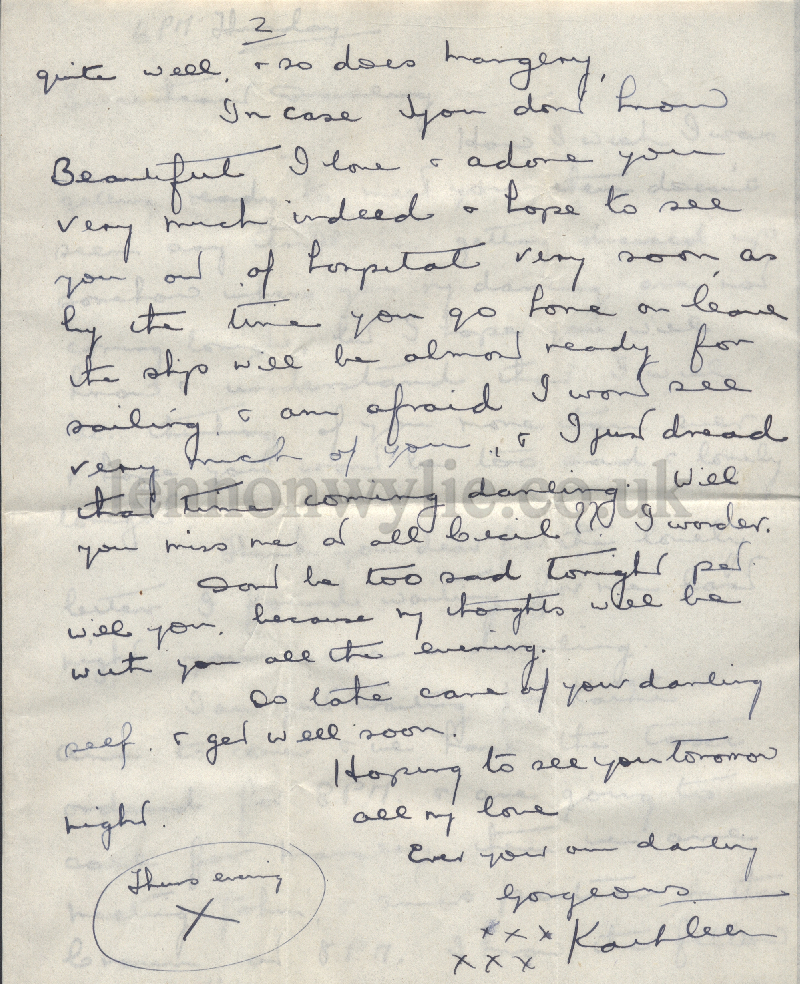 2
quite well, & so does Margery,
In case you don't know
Beautiful I love & adore you
very much indeed & hope to see
you out of hospital very soon, as
by the time you go home on leave
the ship will be almost ready for
sailing, & am afraid I won't see
very much of you, & I just dread
that time coming darling. Will
you miss me at all Cecil ?? I wonder.
Don't be too sad tonight pet
will you, because my thoughts will be
with you all the evening.
Do take care of your darling
self. & get well soon.
Hoping to see you tomorrow
night. all my love
Ever your own darling
Gorgeous
Kathleen
x x x
x x x
Thurs evening
X
lennonwylie.co.uk